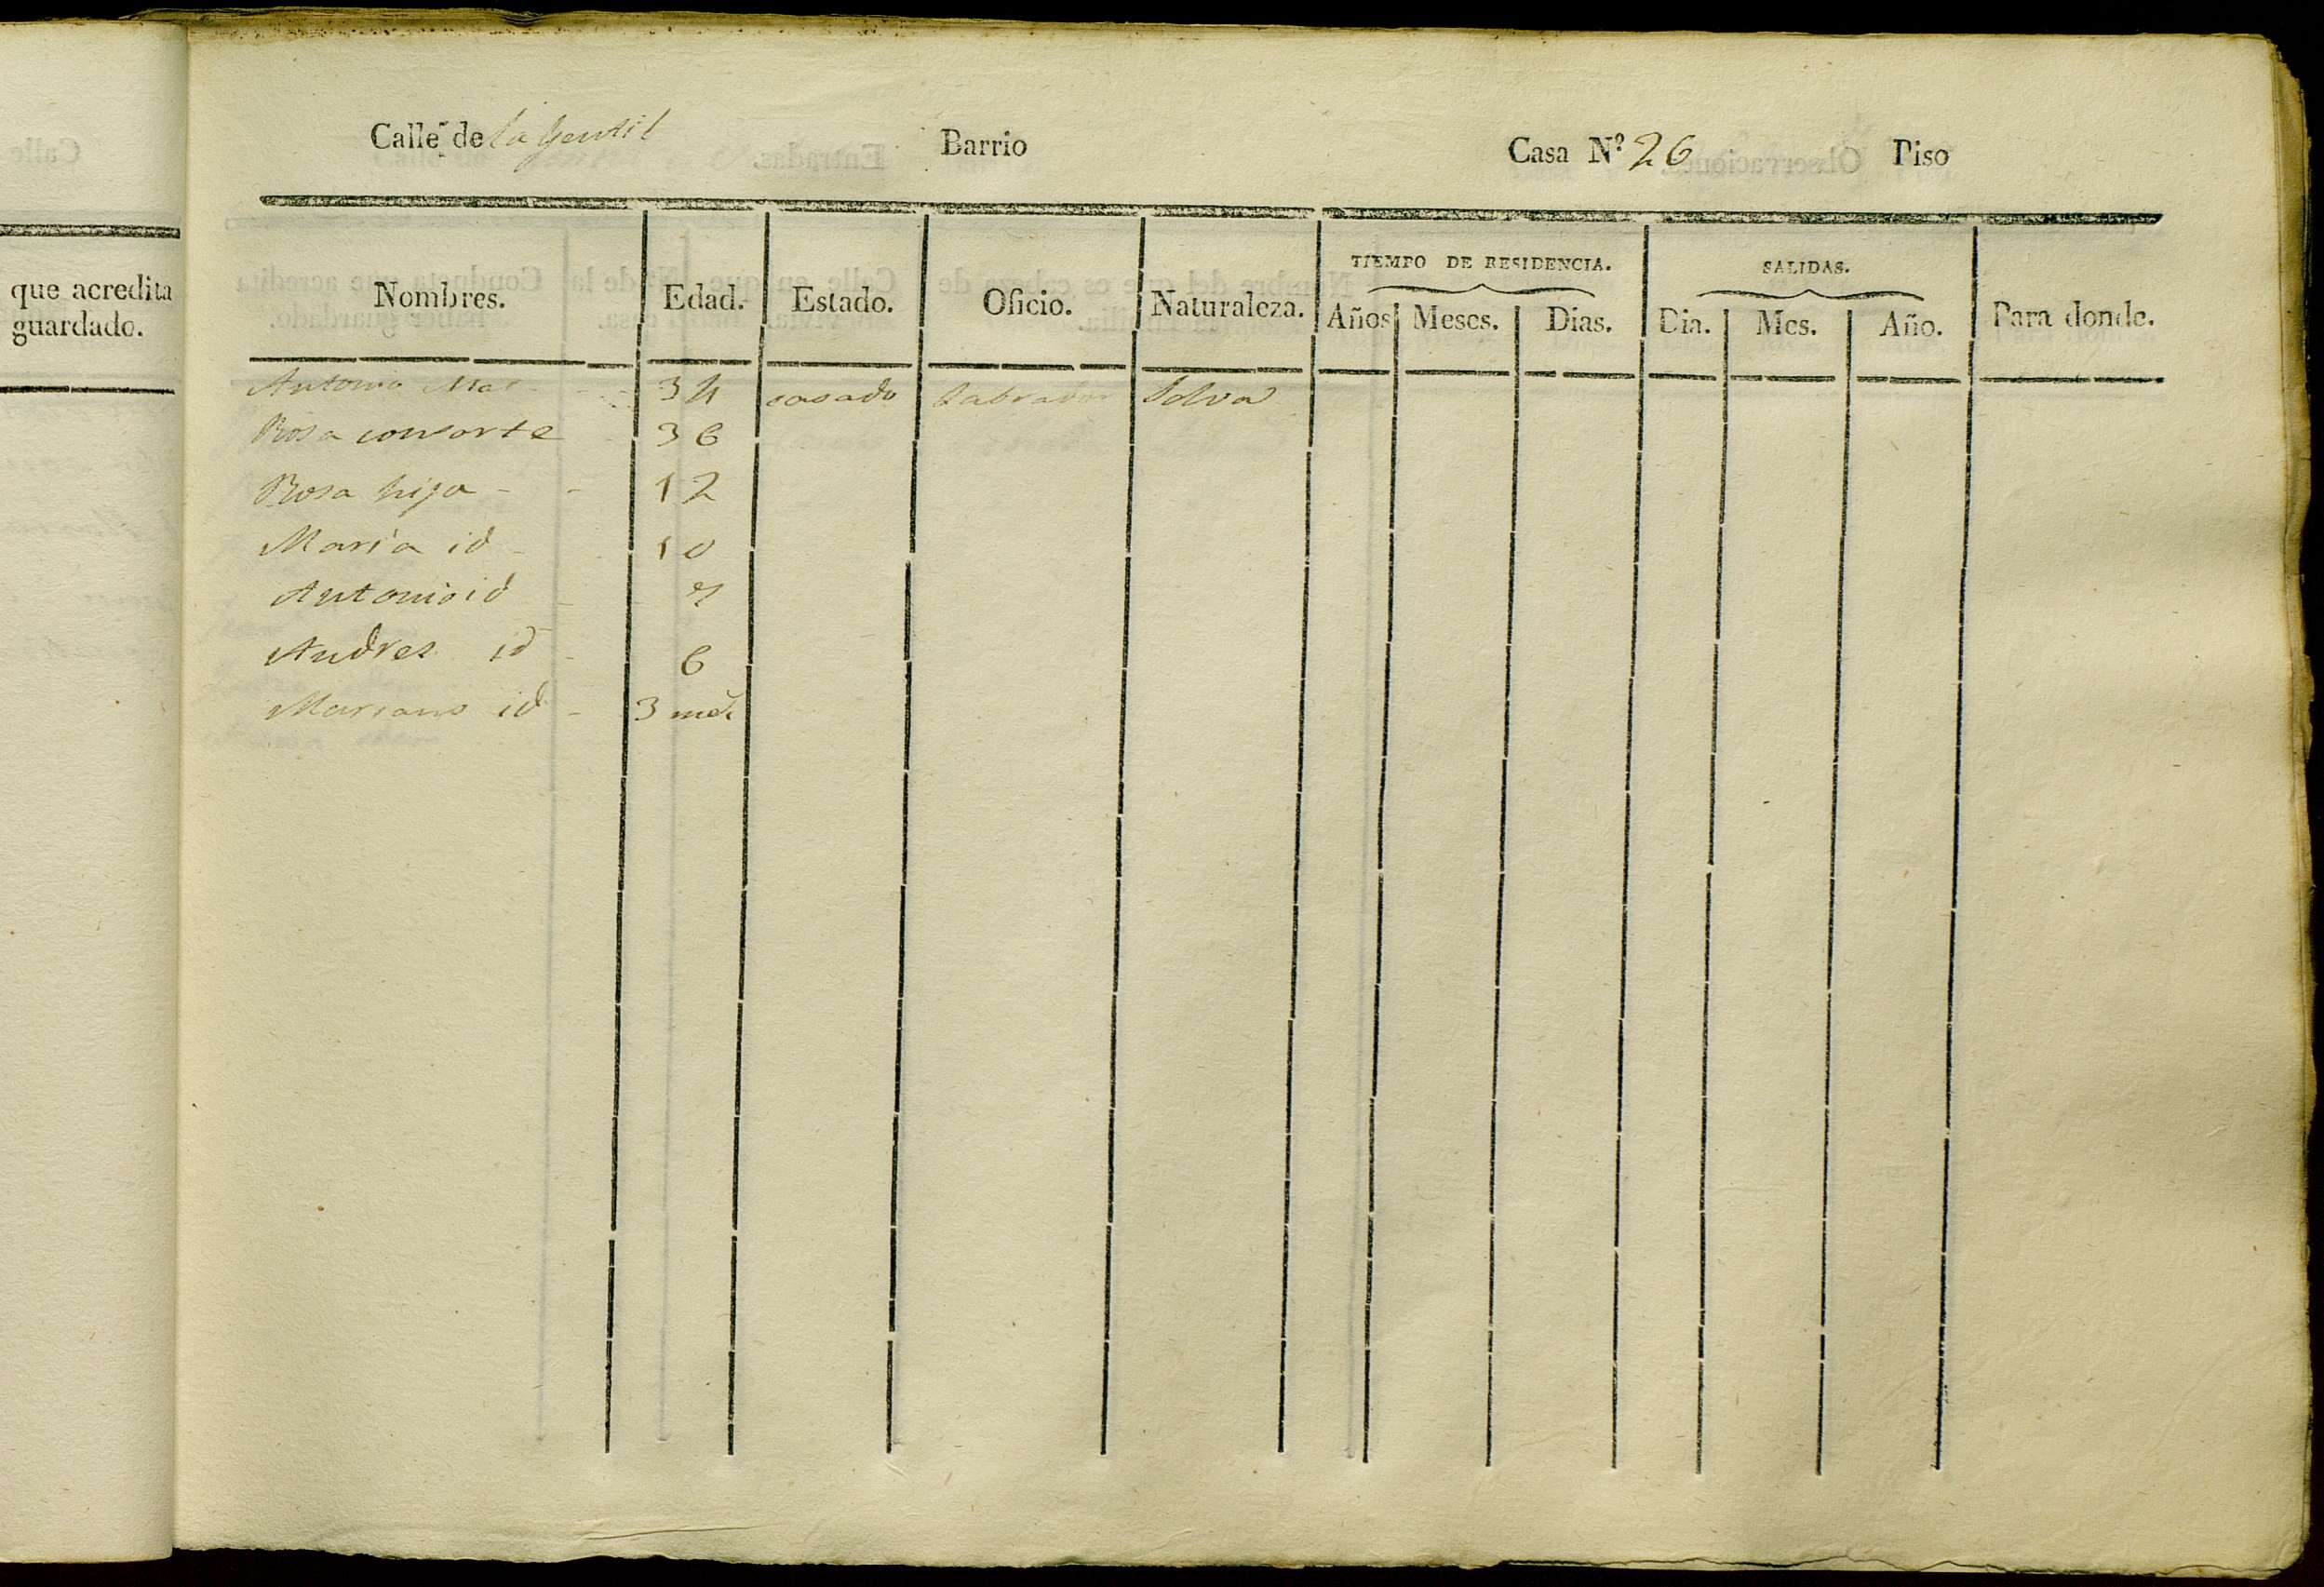 que acredita
guardado.
Calle de la Gentil Barrio Casa Nº 26 Piso
TIEMPO DE RESIDENCIA. SALIDAS.
Nombres. Edad. Estado. Oficio. Naturaleza. Años Meses. Dias. Dia. Mes. Año. Para donde.
Antonio 34 casado Labrador Selva
Rosa consorte 36
Rosa hija - - 12
Maria id - 10
Antonio id - 7
Andres id - 6
Mariano id - 3 mes.